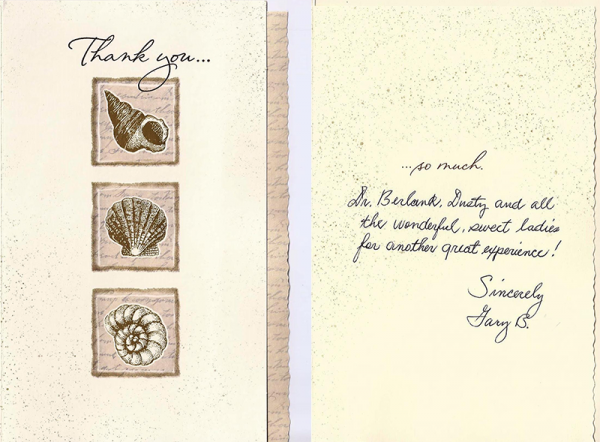 Thank you...
...so much.
Dr. Berlank, Dusty and all
the wonderful, sweet ladies
for another great experience!
Sincerely
Gary B.